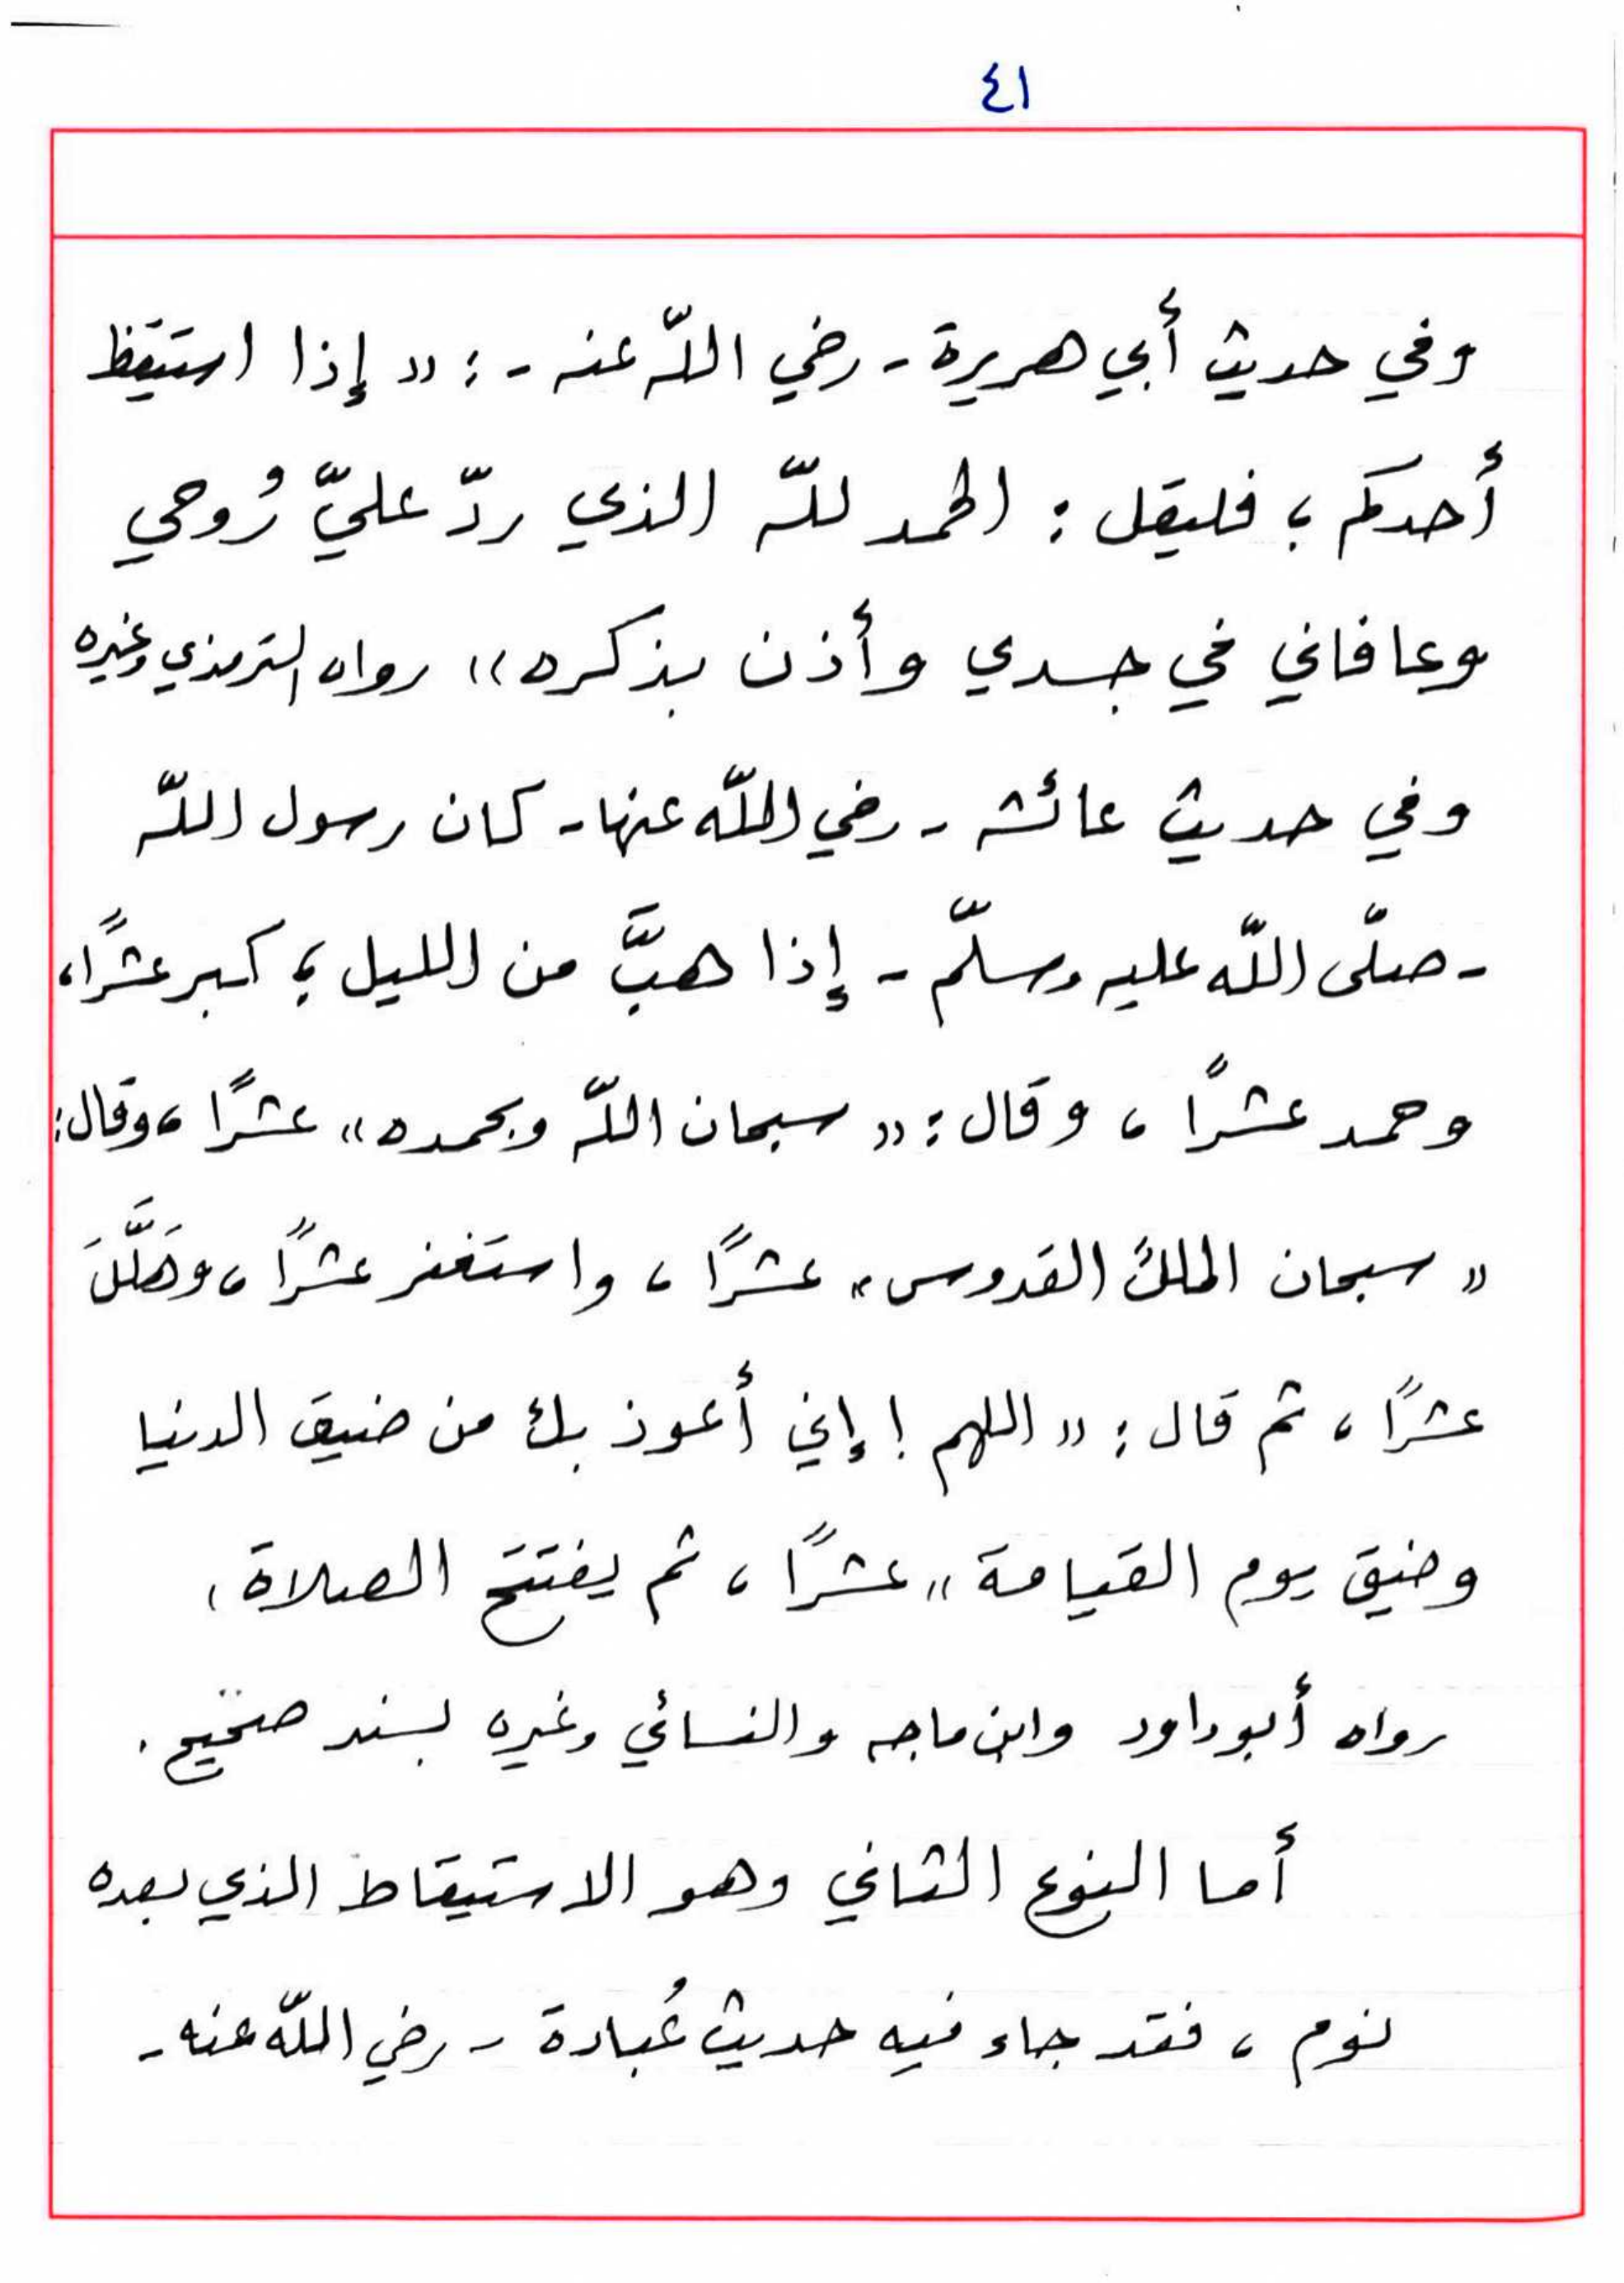 ٤١
وفي حديث أبي هريرة - رضي اللّه عنه - : « إذا استيقظ
أحدكم ؛ فليقل : الحمد للّه الذي ردّ عليّ رُوحي
وعافاني في جسدي وأذن بذكره » رواه الترمذي وغيره
وفي حديث عائشه - رضي اللّه عنها - كان رسول اللّه
- صلّى اللّه عليه وسلّم - إذا هبَّ من الليل ؛ كبر عشرًا ،
وحمد عشرًا ، وقال : « سبحان اللّه وبحمده » عشرًا ، وقال :
« سبحان الملك القدوس » عشرًا ، واستغفر عشرًا ، وهَلَّلَ
عشرًا ، ثم قال : « اللهم ! إني أعوذ بك من ضيق الدنيا
وضيق يوم القيامة » عشرًا ، ثم يفتتح الصلاة ،
رواه أبو داود وابن ماجه والنسائي وغيره بسند صحيح .
أما النوع الثاني وهو الاستيقاط الذي بعده
نوم ، فقد جاء فيه حديث عُبادة - رضي اللّه عنه -